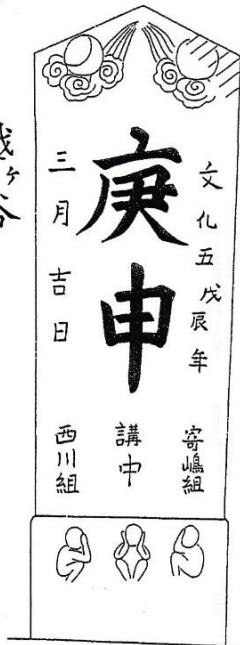 文化五戊辰年
寄嶋組
庚申
講中
三月吉日
西川組
ヶ谷